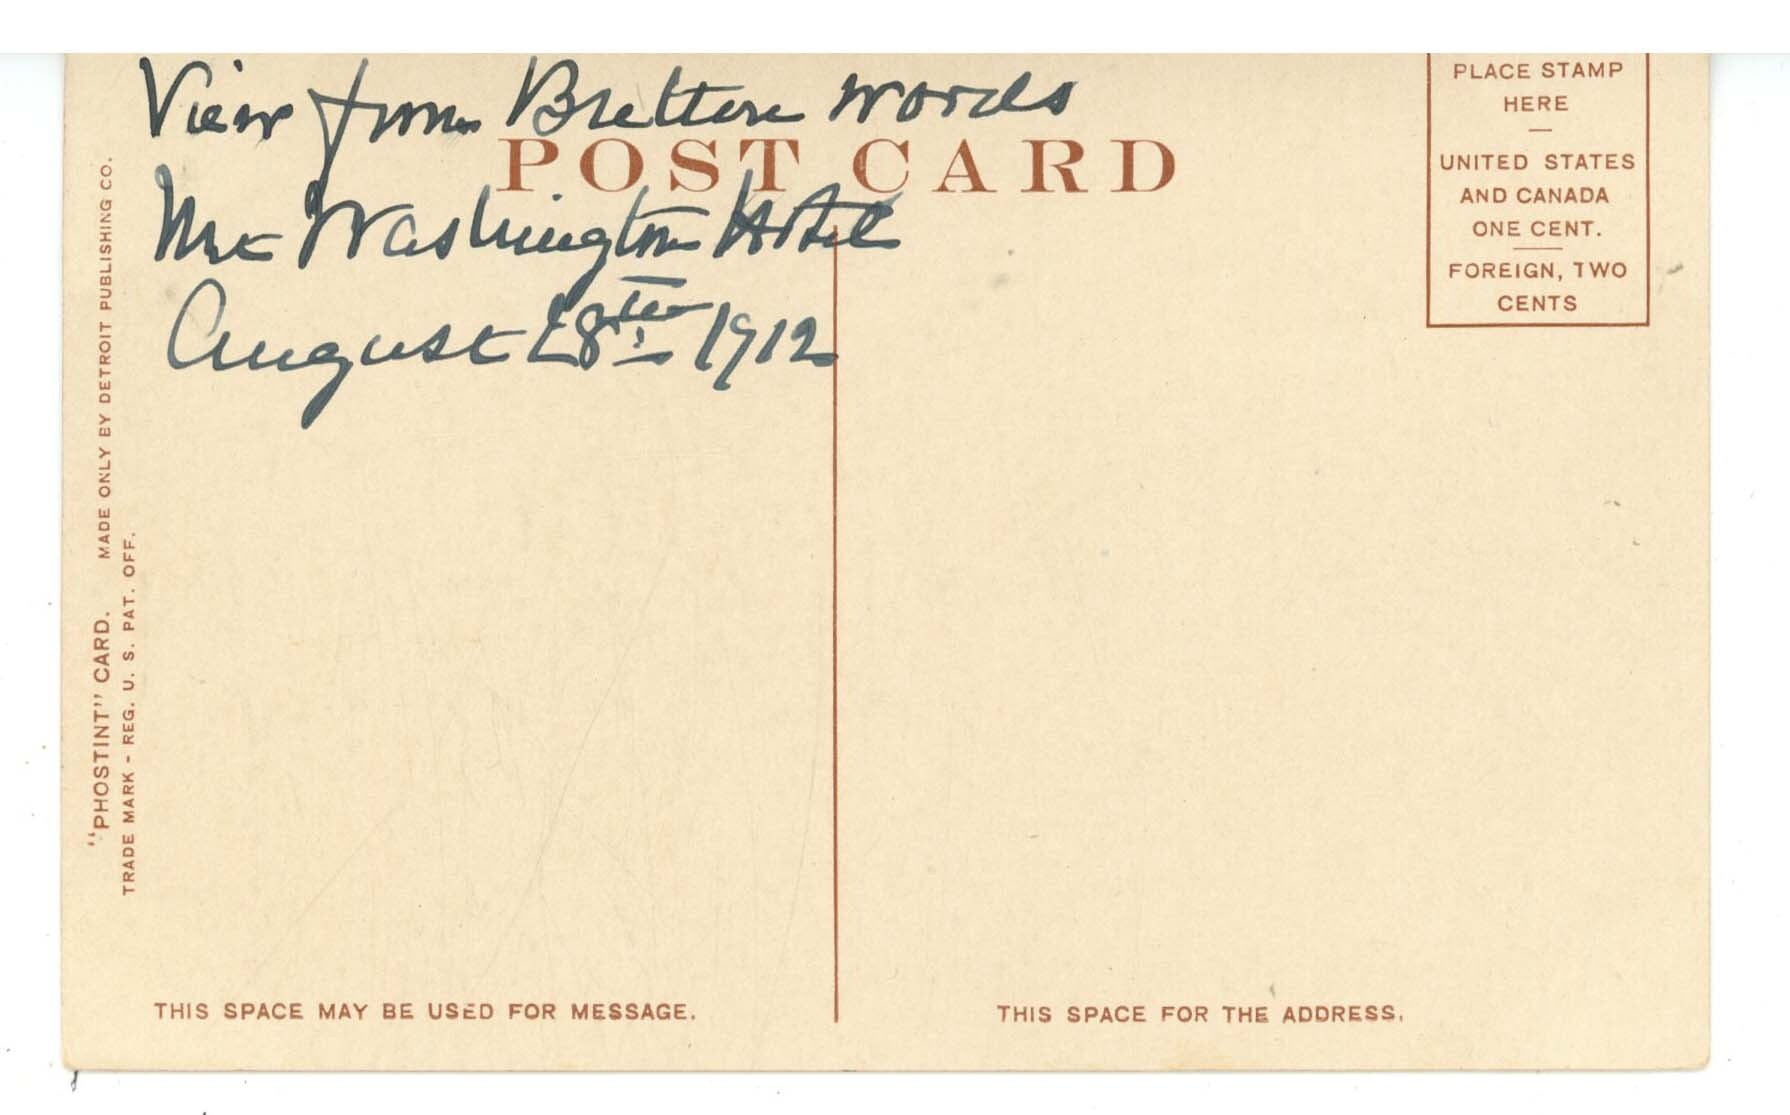 View from Bretton Woods
POST CARD
Mt Washington Hotel
August 28th 1912
PLACE STAMP
HERE
UNITED STATES
AND CANADA
ONE CENT.
FOREIGN, TWO
CENTS
"PHOSTINT" CARD. MADE ONLY BY DETROIT PUBLISHING CO.
TRADE MARK - REG. U. S. PAT. OFF.
THIS SPACE MAY BE USED FOR MESSAGE.
THIS SPACE FOR THE ADDRESS.